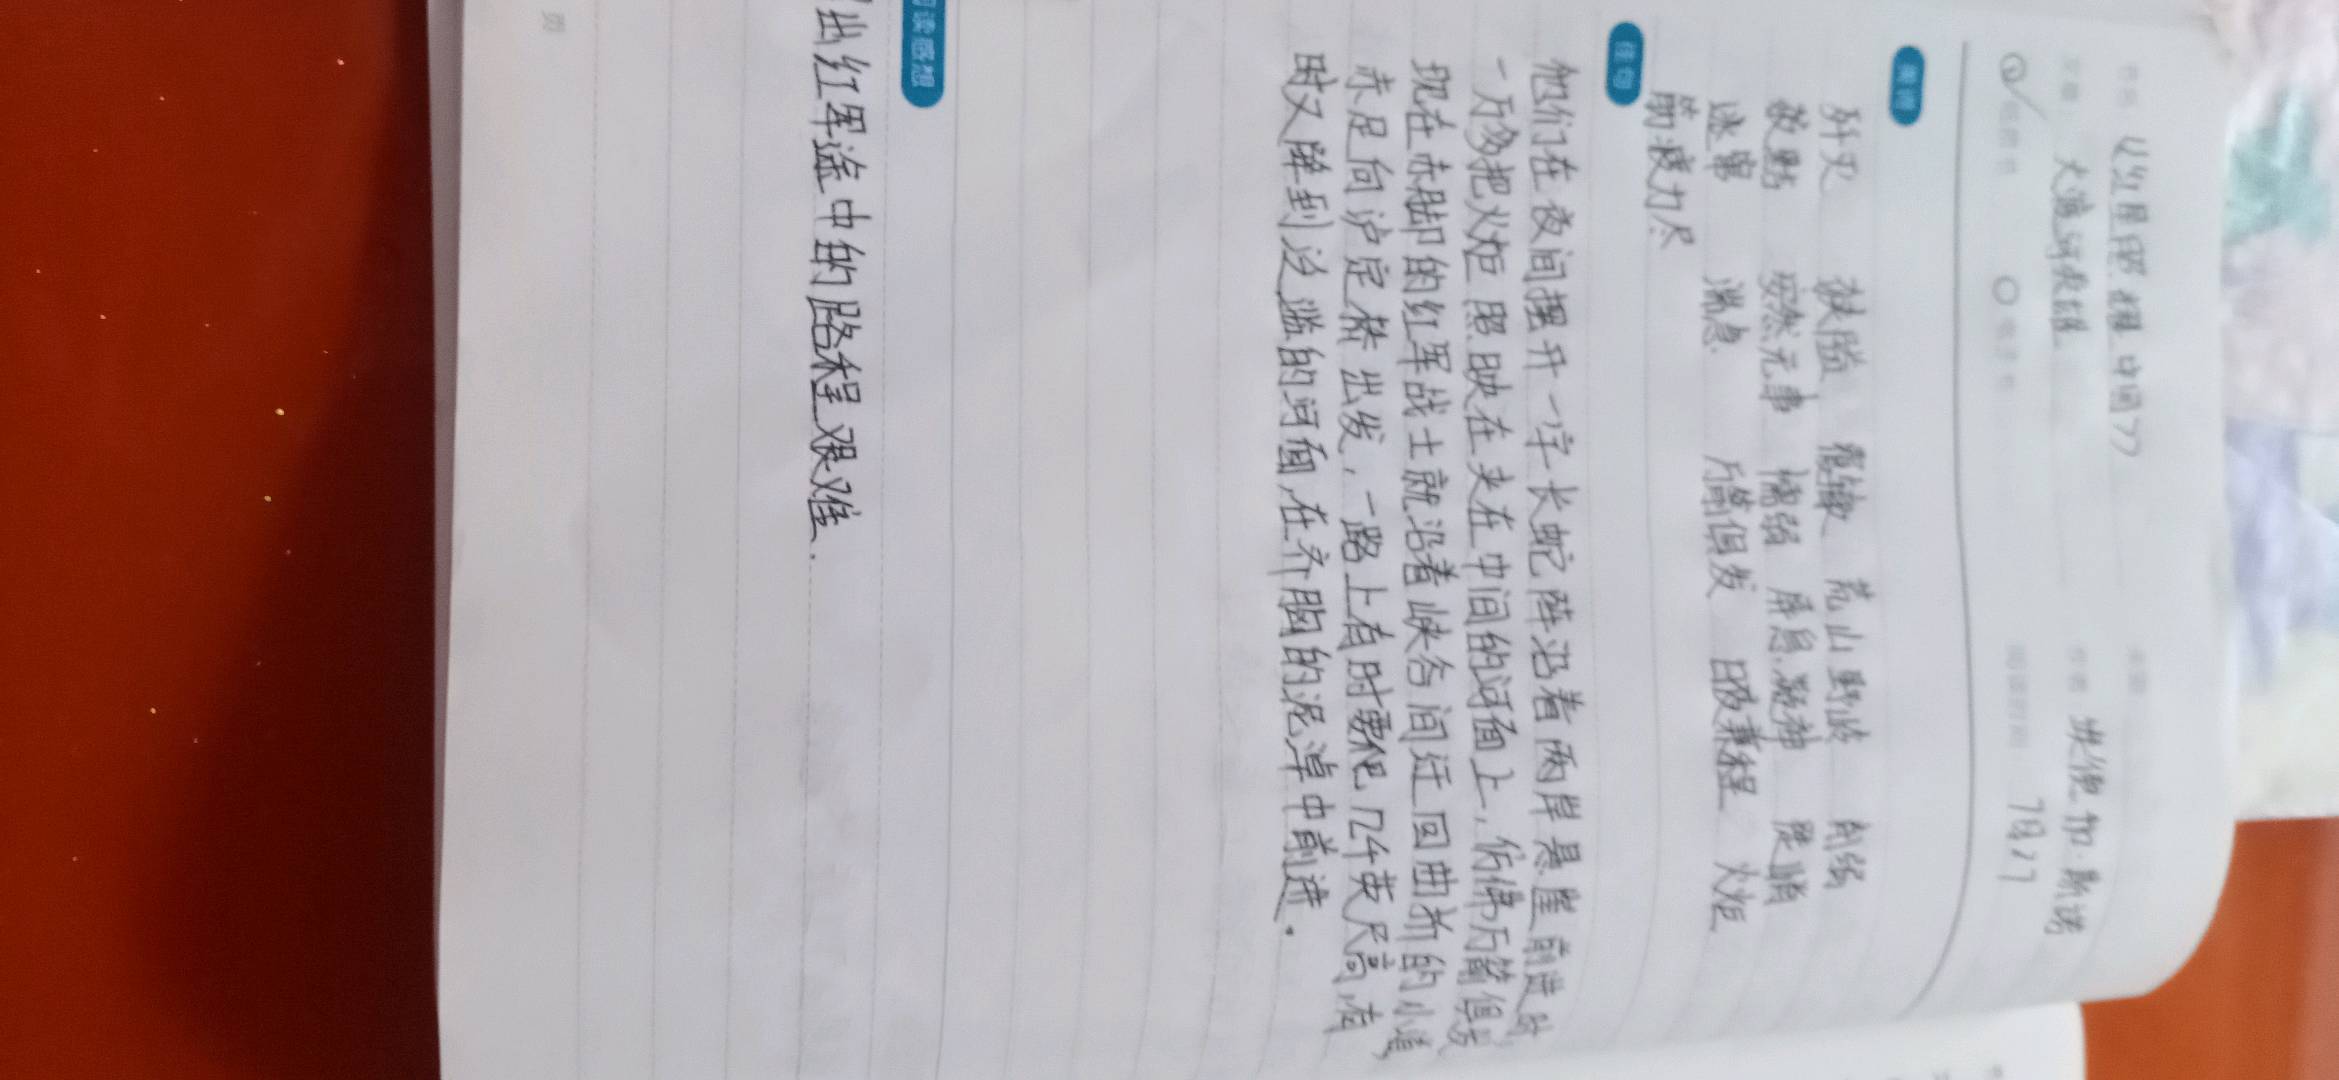 红星照耀中国》》
大渡河英雄
埃德加·斯诺
7月27
歼灭 狭隘 覆辙 荒山野岭 削弱
安然无事 懦弱 屏息凝神
湍急 万箭俱发 日夜兼程 火炬
筋疲力尽
佳句
他们在夜间摆开一字长蛇阵沿着两岸悬崖前进时
一万多把火炬照映在夹在中间的河面上,仿佛万箭俱发
现在赤脚的红军战士就沿着峡谷间迂回曲折的小道
赤足向泸定桥出发,一路上有时要爬几千英尺高,有
时又降到泛滥的河面,在齐胸的泥淖中前进.
阅读感想
出红军途中的路程艰难.